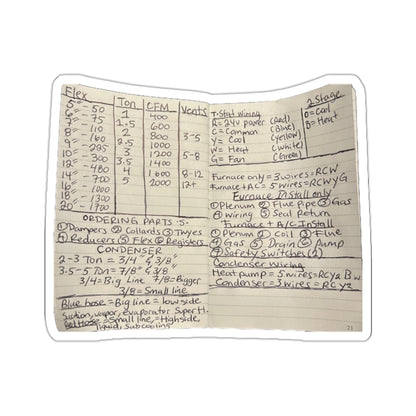 Flex Ton CFM Vents
5" - 50 1 400
6" - 75 1.5 600
7" - 110 2 800 3-5
8" - 160 2.5 1000
9" - 225 3 1200 5-8
10" - 300 3.5 1400
12" - 480 4 1600 8-12
14" - 700 5 2000 12+
16" - 1000
18" - 1300
20" - 1700
ORDERING PARTS :5-
① Dampers ② Collards ③ Twyes
④ Reducers ⑤ Flex ⑥ Registers
CONDENSER
2-3 Ton = 3/4" & 3/8"
3.5-5 Ton = 7/8" & 3/8
3/4 = Big Line 7/8 = Bigger
3/8 = Small line
Blue hose = Big line = low side
Suction, vapor, evaporator Super H.
Red Hose = Small line, = Highside,
liquid, Subcooling
T-Stat Wiring
R = 24V power (Red)
C = Common (Blue)
Y = Cool (Yellow)
W = Heat (White)
G = Fan (Green)
2-Stage
O = Cool
B = Heat
Furnace only = 3 wires = RCW
Furnace + AC = 5 wires = RCWYG
Furnace Install only
① Plenum ② Flue Pipe ③ Gas
④ Wiring ⑤ Seal Return
Furnace + A/C Install
① Plenum ② Coil ③ Flue
④ Gas ⑤ Drain ⑥ Pump
⑦ Safety Switches (2)
Condenser Wiring
Heat pump = 5 wires = RCY2 B W
Condenser = 3 wires = RCY2
21